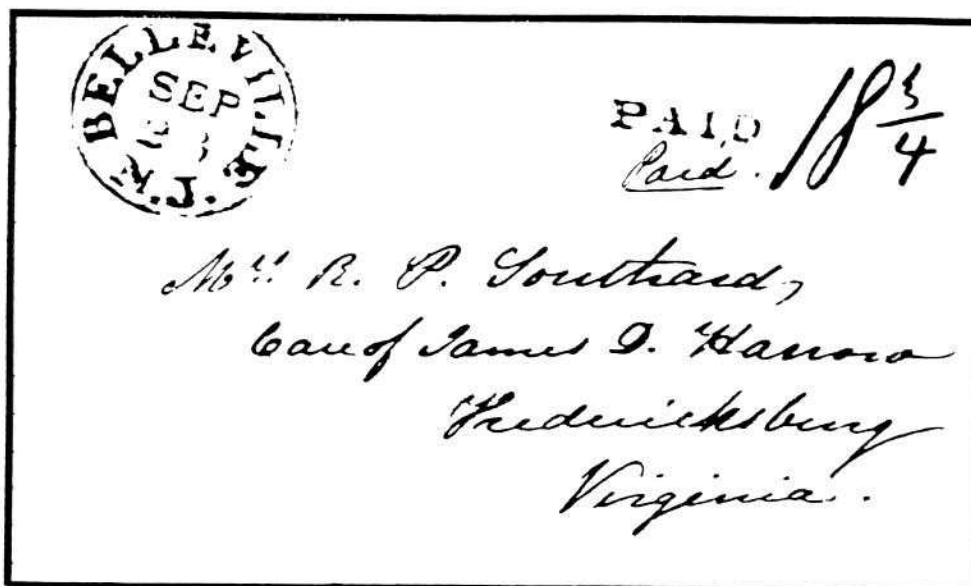 BELLEVILLE N.J.
SEP
23
PAID
Paid. 18 3/4
Mrs R. P. Southard,
Care of James D. Harrow
Fredericksburg
Virginia.